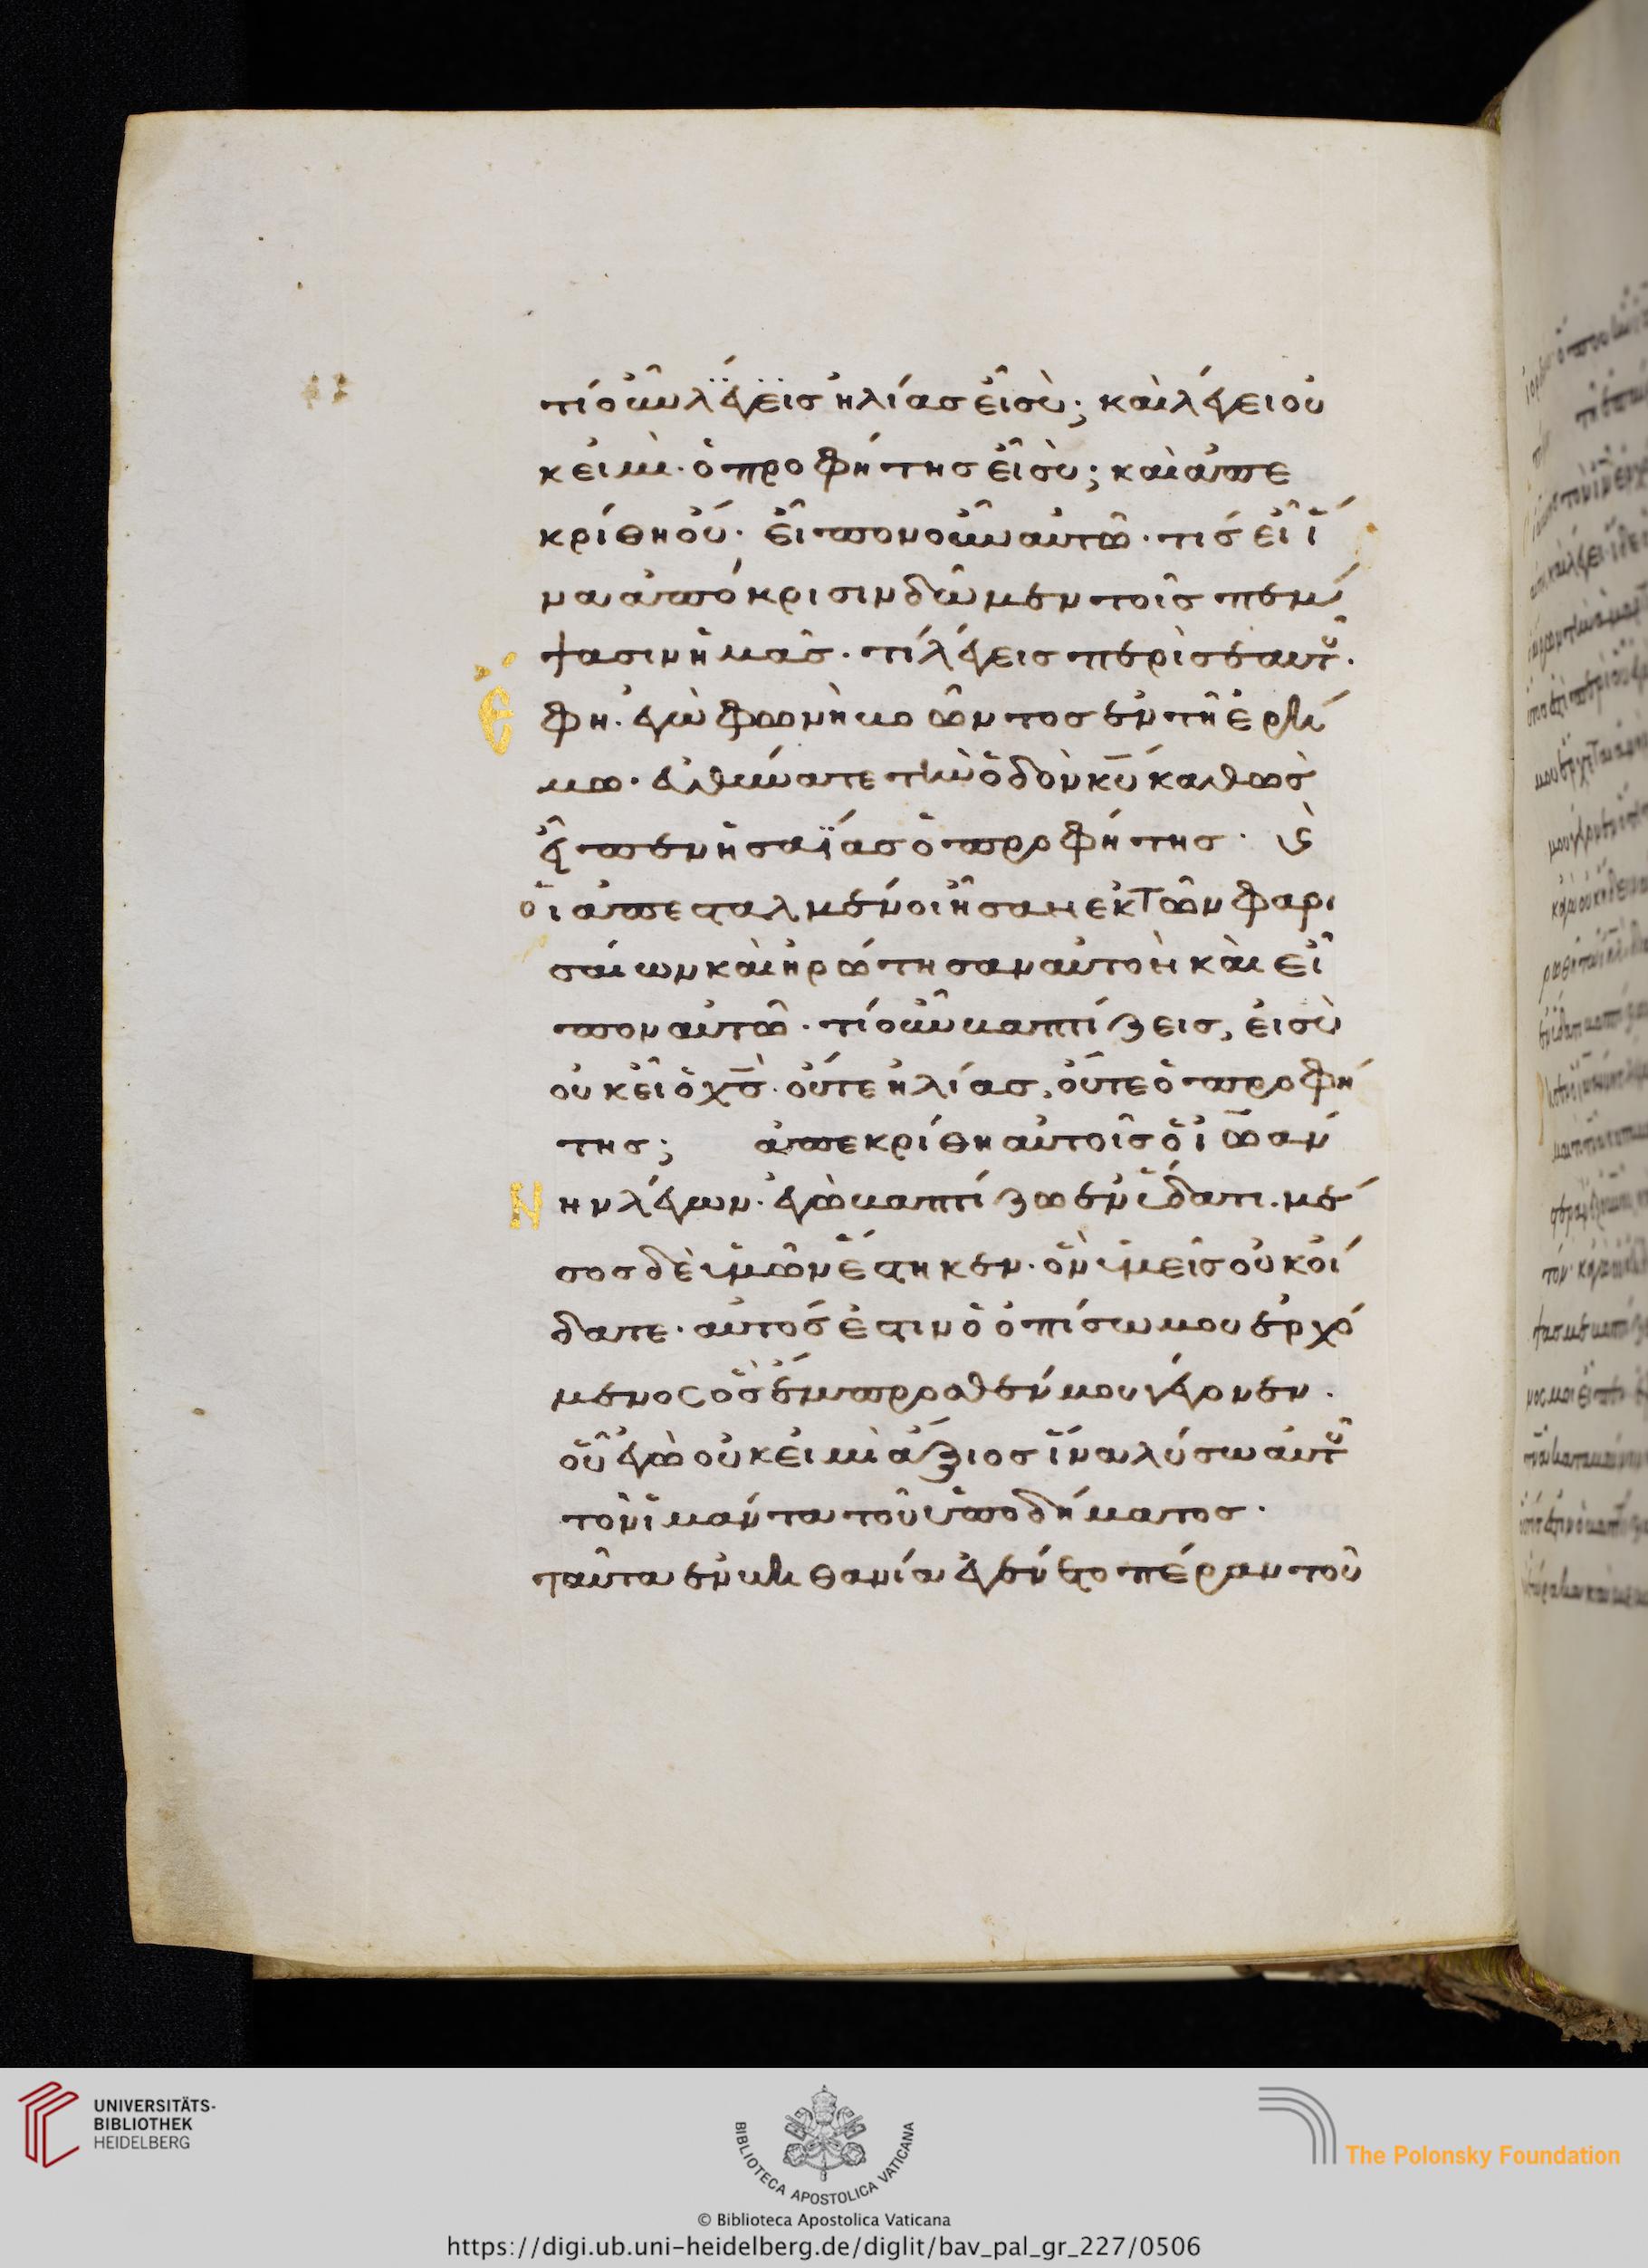 τί οὖν λέγεις ἠλίας εἶ σὺ; καὶ λέγει οὐ
κ εἰμὶ· ὁ προφήτης εἶ σὺ; καὶ ἀπε
κρίθη οὔ· εἶπον οὖν αὐτῶ· τίς εἶ ἵ
να ἀπόκρισιν δῶμεν τοῖς πέμ
ψασιν ἡμᾶς· τί λέγεις περὶ σεαυτοῦ·
Ἔφη· ἐγὼ φωνὴ βοῶντος ἐν τῆ ἐρή
μω· εὐθύνατε τὴν ὁδὸν κ̅υ̅ καθὼς
εἶπεν ἡσαΐας ὁ προφήτης· καὶ
οἱ ἀπεσταλμένοι ἦσαν ἐκ τῶν φαρι
σαίων καὶ ἠρώτησαν αὐτὸν καὶ εἶ
πον αὐτῶ· τί οὖν βαπτίζεις, εἰ σὺ
οὐκ εἶ ὁ χ̅ς̅· οὔτε ἠλίας, οὔτε ὁ προφή
της; ἀπεκρίθη αὐτοῖς ὁ ἰωάν
Νην λέγων· ἐγὼ βαπτίζω ἐν ὕδατι· μέ
σος δὲ ὑμῶν ἕστηκεν· ὃν ὑμεῖς οὐκ οἴ
δατε· αὐτός ἐστιν ὁ ὀπίσω μου ἐρχό
μενος ὃς ἔμπροσθέν μου γέγονεν·
οὗ ἐγὼ οὐκ εἰμὶ ἄξιος ἵνα λύσω αὐτοῦ
τὸν ἱμάντα τοῦ ὑποδήματος·
ταῦτα ἐν βηθανία ἐγένετο πέραν τοῦ
UNIVERSITÄTS-
BIBLIOTHEK
HEIDELBERG
BIBLIOTECA APOSTOLICA VATICANA
The Polonsky Foundation
© Biblioteca Apostolica Vaticana
https://digi.ub.uni-heidelberg.de/diglit/bav_pal_gr_227/0506